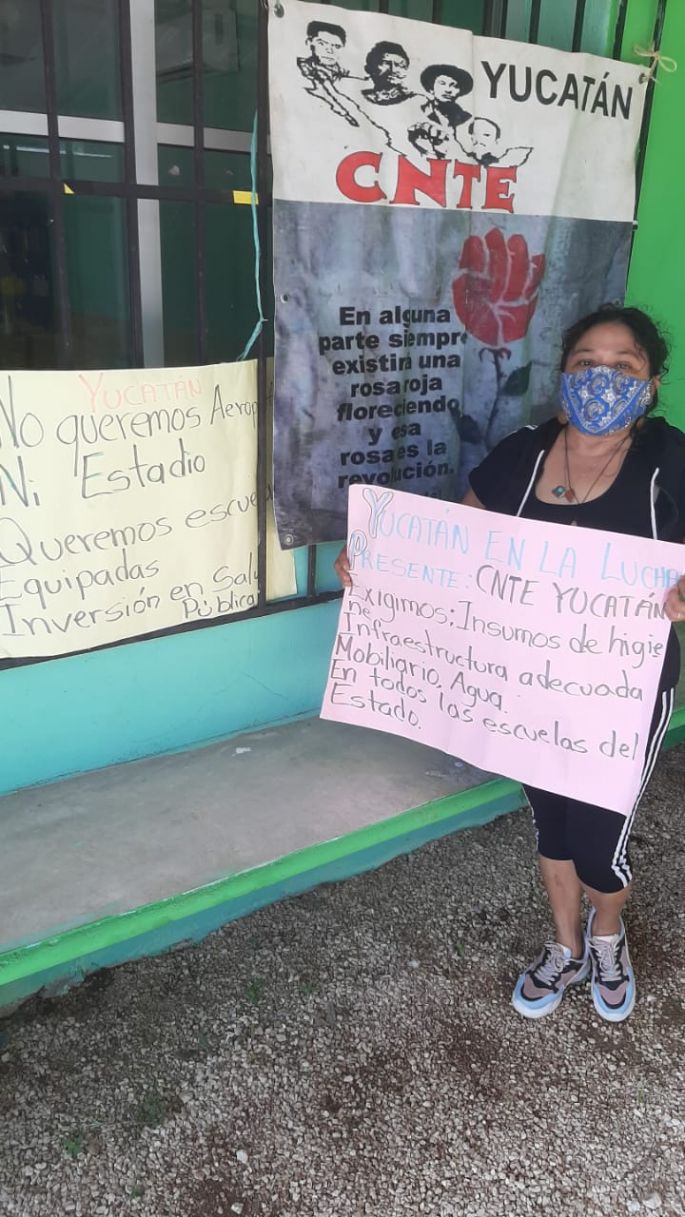 YUCATÁN
CNTE
En alguna
parte siempre
existirá una
rosa roja
floreciendo
y esa
rosa es la
revolución.
YUCATÁN
No queremos Aerop
Ni Estadio
Queremos escue
Equipadas
Inversión en Salu
Pública
YUCATÁN EN LA LUCHA
PRESENTE: CNTE YUCATÁN
Exigimos; Insumos de higie
ne,
Infraestructura adecuada
Mobiliario, Agua.
En todos las escuelas del
Estado.